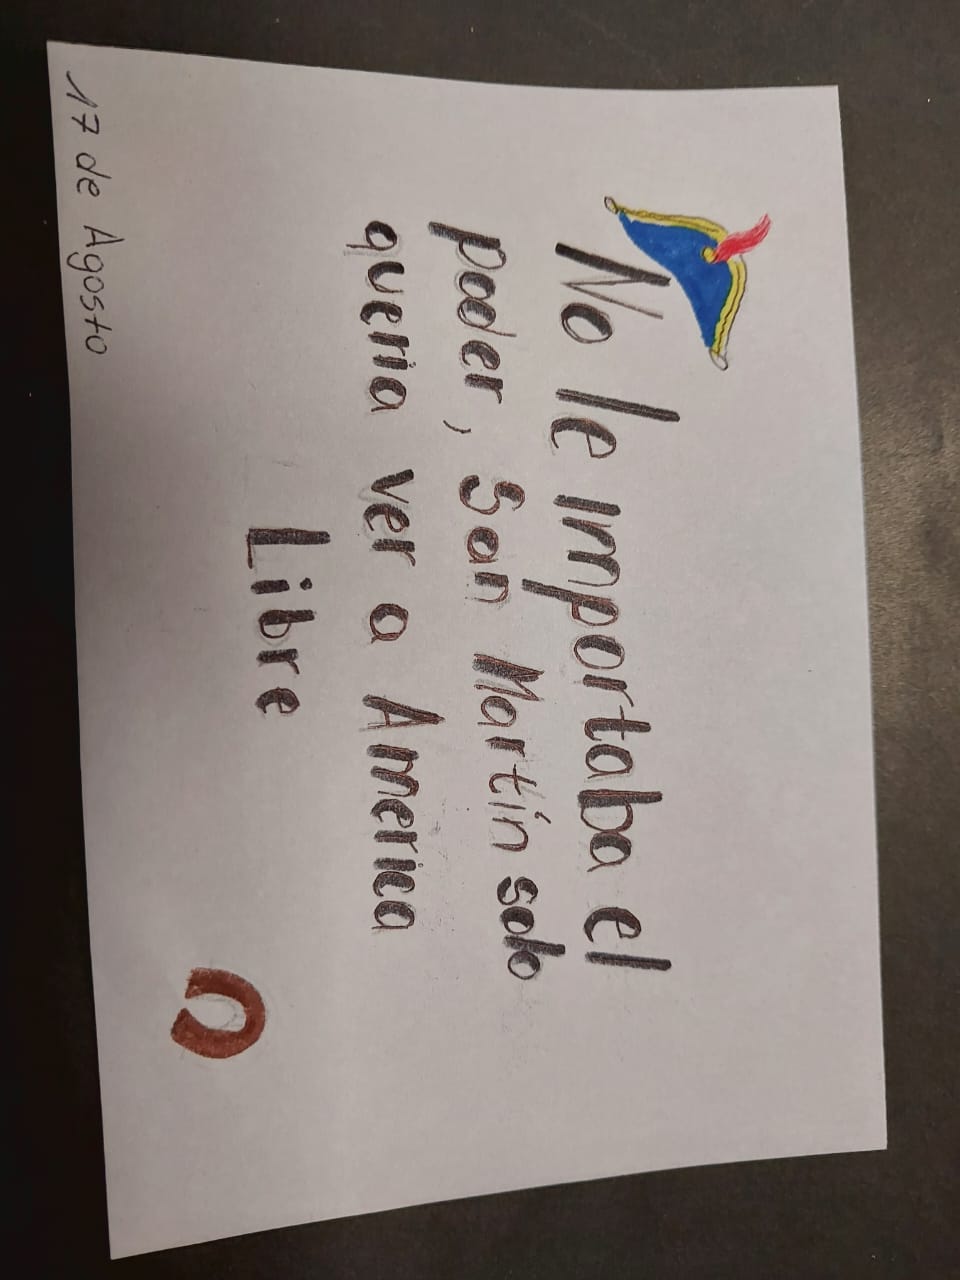 No le importaba el
poder, San Martín solo
queria ver a America
Libre
17 de Agosto